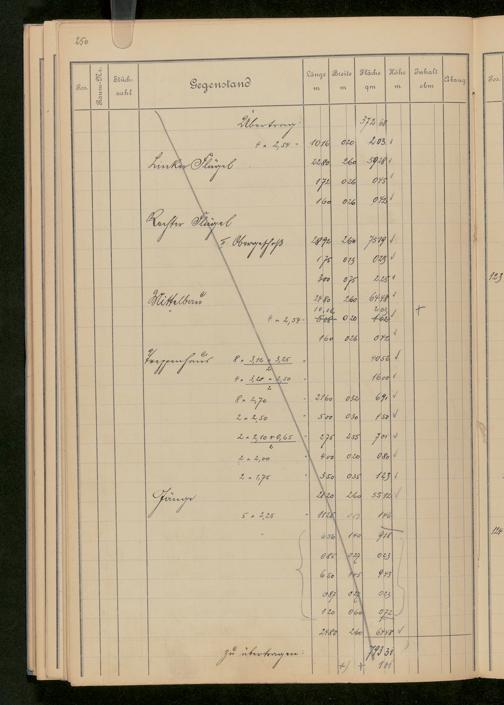 250
Pos. Raum-Nr. Stück-zahl Gegenstand Länge m Breite m Fläche qm Höhe m Inhalt cbm Abzug
Übertrag: 372 68
4 × 2,54 = 1016 020 203
Linker Flügel 2280 260 5928
172 026 045
160 026 042
Rechter Flügel
5 Obergeschoß 2892 260 7519
175 013 023
300 075 225
Mittelbau 2480 260 6448
4 × 2,54 = 020
160 026 042
Treppenhaus
1600
8 × 2,70 2160 032 691
2 × 2,50 500 030 150
275 255 701
2 × 2,00 400 020 080
2 × 1,75 350 035 123
Gänge 2120 260 5512
5 × 2,25 1125 013 146
140
085 027 023
650 145 943
085 027 023
120 060 072
2480 260 6448
zu übertragen: